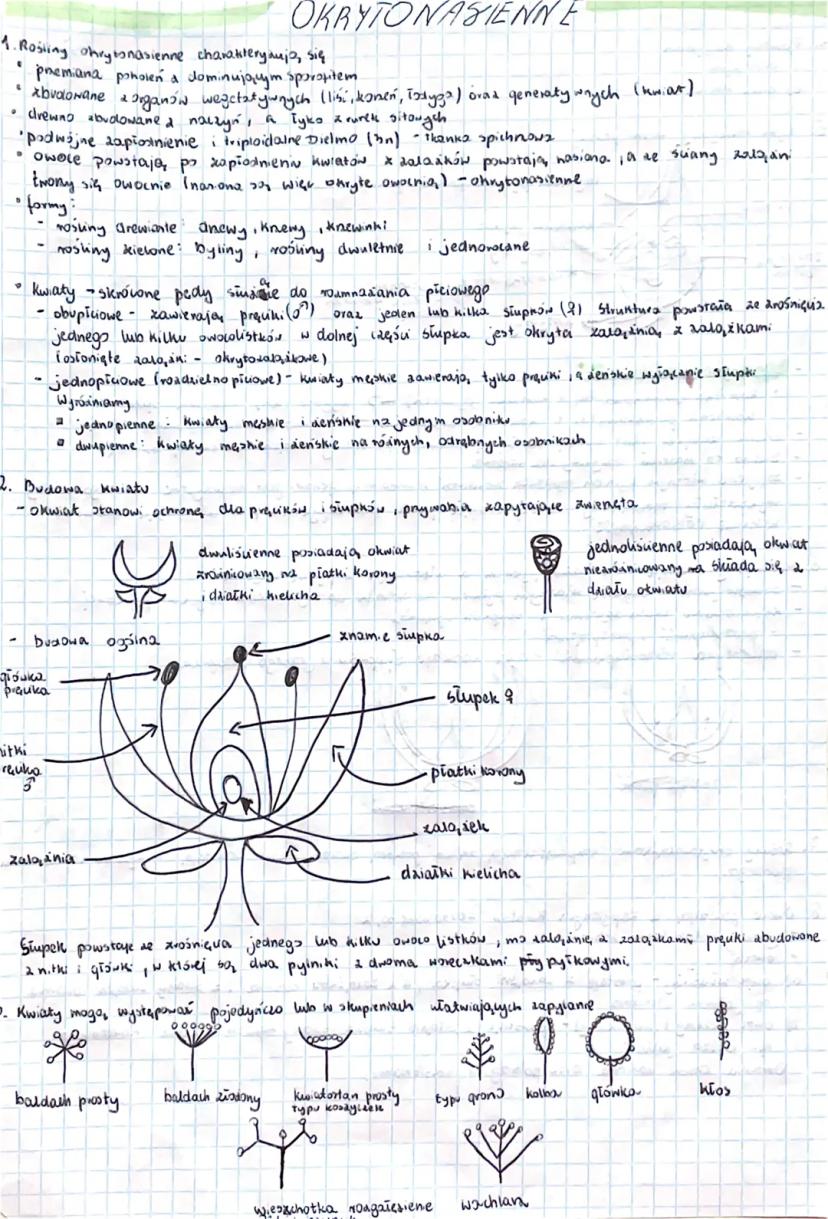 OKRYTONASIENNE
1. Rośliny okrytonasienne charakteryzują się
• przemiana pokoleń z dominującym sporofitem
• zbudowane z organów wegetatywnych (liść, korzeń, łodyga) oraz generatywnych (kwiat)
• drewno zbudowane z naczyń, a łyko z rurek sitowych
• podwójne zapłodnienie i triploidalne bielmo (3n) - tkanka spichrzowa
• owoce powstają po zapłodnieniu kwiatów z zalążków powstają nasiona, a ze ściany zalążni
tworzy się owocnie (nasiona są więc okryte owocnią) - okrytonasienne
• formy:
- rośliny drewiante: drzewy, krzewy, krzewinki
- rośliny zielone: byliny, rośliny dwuletnie i jednoroczne
• kwiaty → skrócone pędy służące do rozmnażania płciowego
- obupłciowe - zawierają pręciki (♂) oraz jeden lub kilka słupków (♀) struktura powstała ze zrośnięcia
jednego lub kilku owocolistków w dolnej części słupka jest okryta zalążnią z zalążkami
(osłonięte zalążki - okrytozalążkowe)
- jednopłciowe (rozdzielnopłciowe) - kwiaty męskie zawierają tylko pręciki, a żeńskie wyłącznie słupki
Wyróżniamy
▫ jednopienne: kwiaty męskie i żeńskie na jednym osobniku
▫ dwupienne: kwiaty męskie i żeńskie na różnych, odrębnych osobnikach
2. Budowa kwiatu
- okwiat stanowi ochronę dla pręcików i słupków, przywabia zapylające zwierzęta
dwuliścienne posiadają okwiat
zróżnicowany na płatki korony
i działki kielicha
jednoliścienne posiadają okwiat
niezróżnicowany na składa się z
działu okwiatu
- budowa ogólna
znamie słupka
główka
pręcika
słupek ♀
nitki
pręcika
♂
płatki korony
zalążek
zalążnia
działki kielicha
Słupek powstaje ze zrośnięcia jednego lub kilku owocolistków, ma zalążnię z zalążkami pręciki zbudowane
z nitki i główki, w której są dwa pylniki z dwoma woreczkami pyłkowymi.
. Kwiaty mogą występować pojedyńczo lub w skupieniach ułatwiających zapylanie
baldach prosty
baldach złożony
kwiatostan prosty
typu koszyczek
typu grono
kolba
główka
kłos
wierzchotka rozgałęzienie
wachlarz